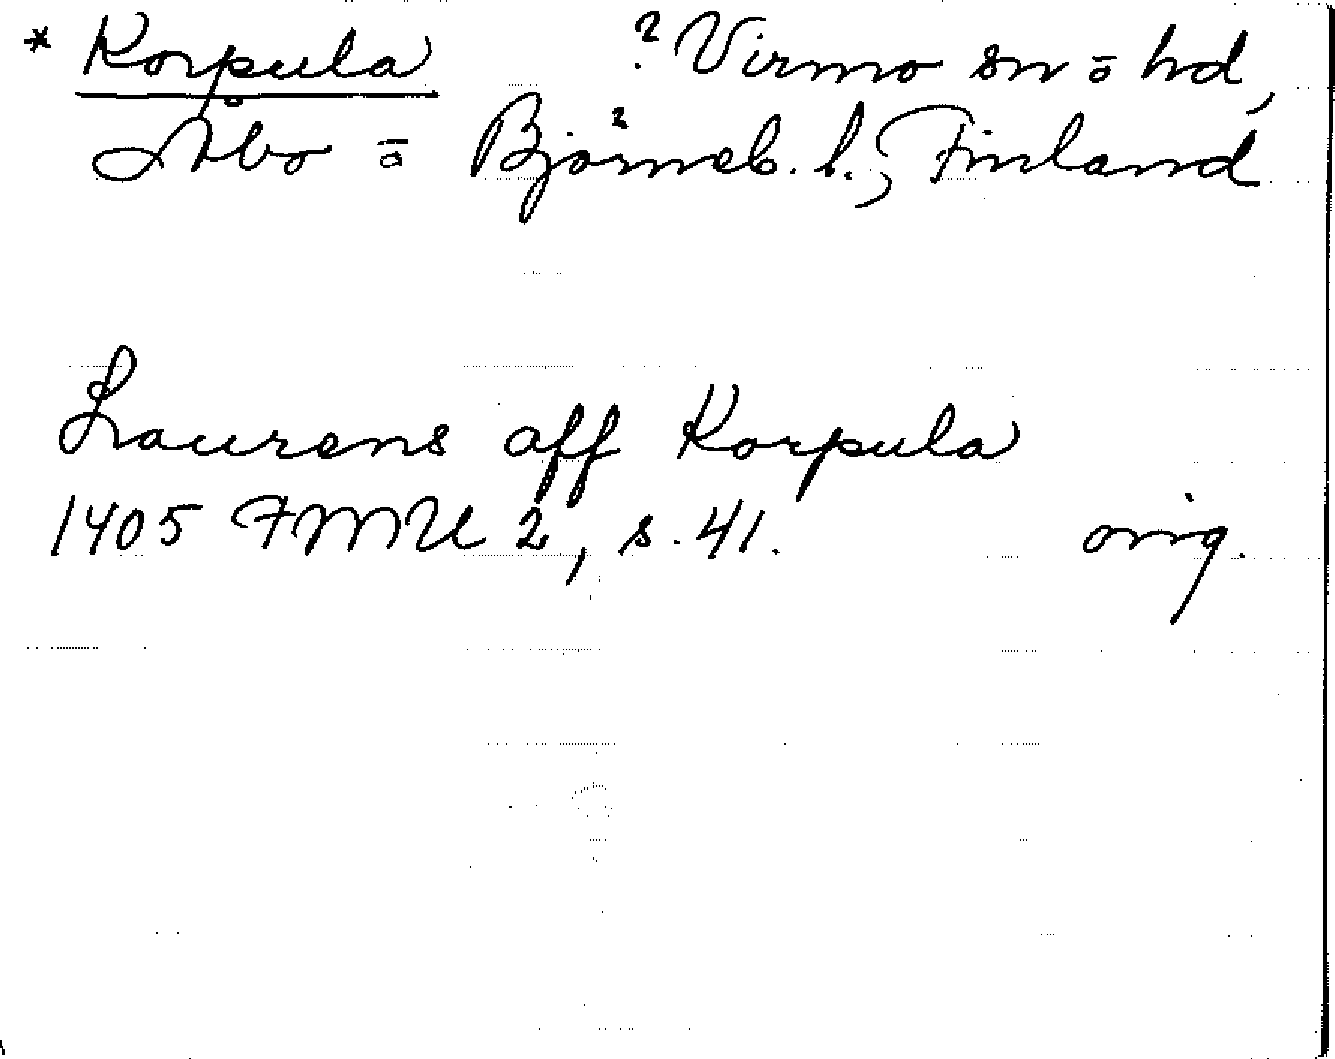 * Korpula ? Virmo sn o hd,
Åbo o Björneb. l., Finland
Laurens aff Korpula
1405 FMU 2, s. 41. orig.